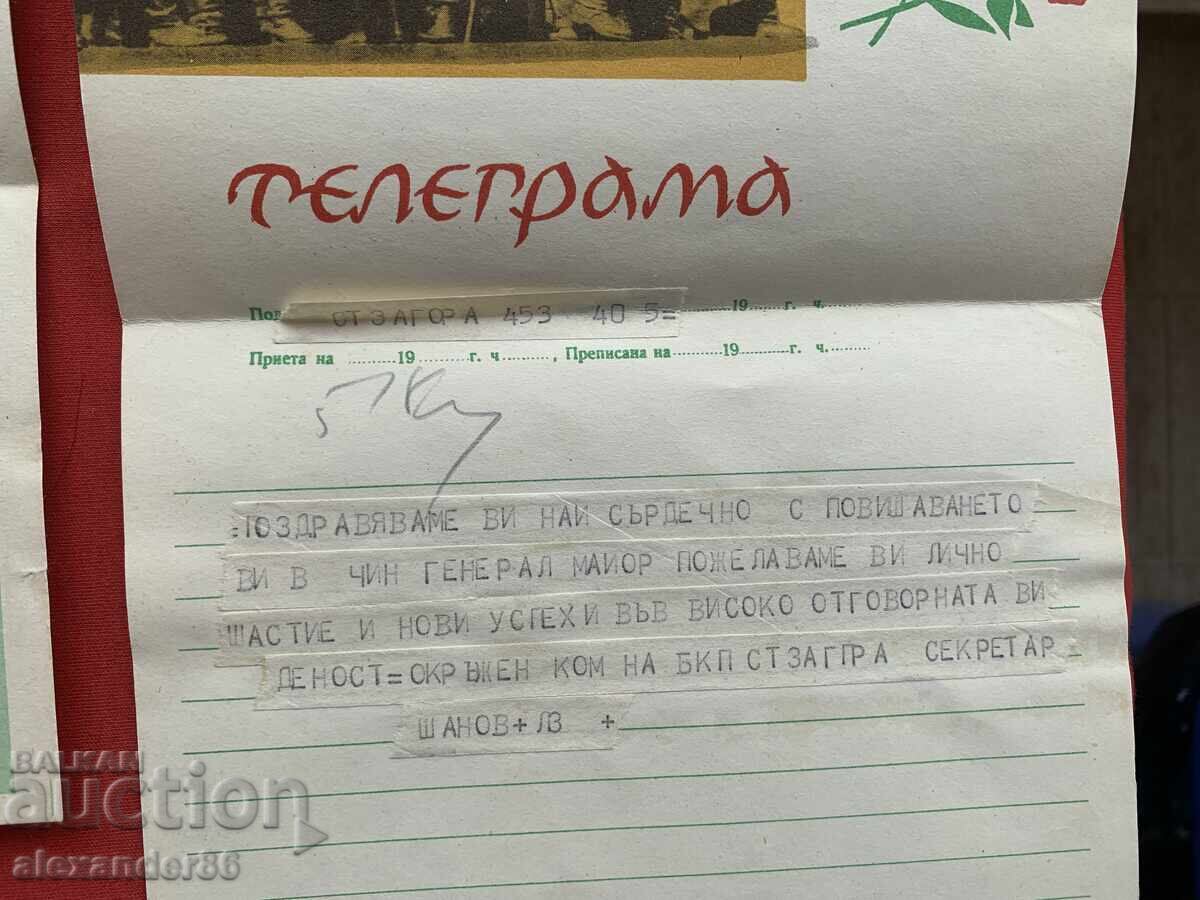 ТЕЛЕГРАМА
Под СТ ЗАГОРА 453 40 5= 19 г. ч.
Приета на 19 г. ч , Преписана на 19 г. ч.
=ПОЗДРАВЯВАМЕ ВИ НАИ СЪРДЕЧНО С ПОВИШАВАНЕТО
ВИ В ЧИН ГЕНЕРАЛ МАИОР ПОЖЕЛАВАМЕ ВИ ЛИЧНО
ШАСТИЕ И НОВИ УСПЕХИ ВЪВ ВИСОКО ОТГОВОРНАТА ВИ
ДЕНОСТ=ОКРЪЖЕН КОМ НА БКП СТЗАГПРА СЕКРЕТАР
ШАНОВ+ +
BALKAN
auction
alexander86